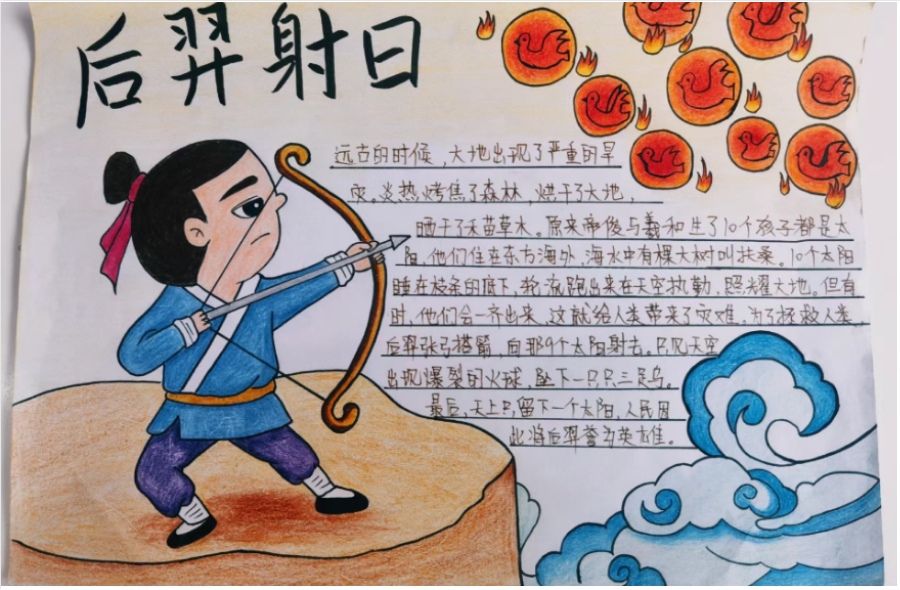 后羿射日
远古的时候，大地出现了严重的旱
灾。炎热烤焦了森林，烘干了大地，
晒干了禾苗草木。原来帝俊与羲和生了10个孩子都是太
阳，他们住在东方海外，海水中有棵大树叫扶桑。10个太阳
睡在枝条的底下，轮流跑出来在天空执勤，照耀大地。但有
时，他们会一齐出来，这就给人类带来了灾难。为了拯救人类，
后羿张弓搭箭，向那9个太阳射去。只见天空
出现爆裂的火球，坠下一只只三足乌。
最后，天上只留下一个太阳，人民因
此将后羿誉为英雄。